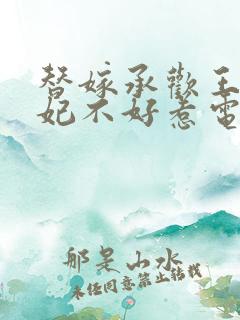 替嫁承歡王
妃不好惹電
那是山水
未经同意禁止转载